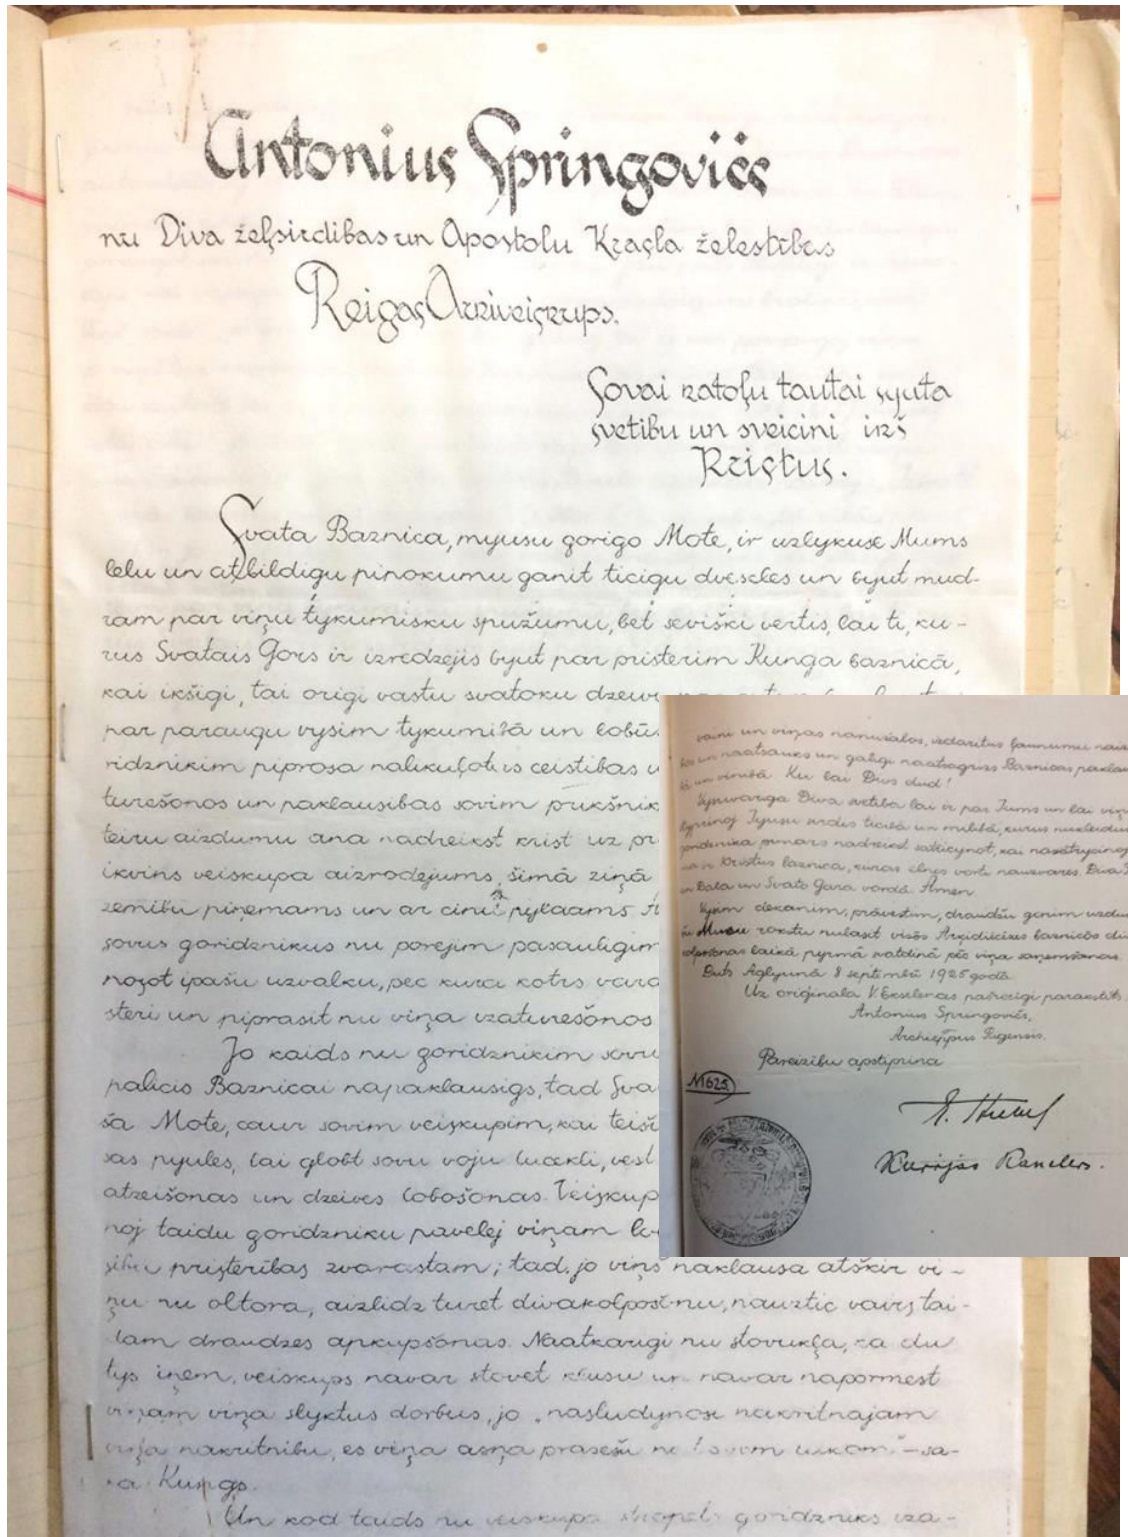 Antonius Springovičs
nu Diva želsirdibas un Apostolu Krasla želestibas
Reigas Arkiveiskups.
Sovai katoļu tautai syuta
svetibu un sveicini iкš
Kristus.
Svata Baznica, myusu gorigo Mote, ir uzlykuse Mums
lelu un atbildigu pinokumu ganit ticigu dveseles un byut mud-
ram par viņu tykumisku spužumu, bet seviški vertis, lai ti, ku-
rus Svatais Gors ir izredzejis byut par pristerim Kunga baznicā,
kai ikšigi, tai origi vastu svatoku dzeivi
par paraugu vysim tykumibā un lobūs
ridznikim piprosa nalikuļotus ceistibas u
turešonos un paklausibas sovim prikšnik
teiru aizdumu ana nadreikst krist uz pr
ikvins veiskupa aizrodejums, šimā ziņā
zemibu piņemams un ar cinu pyldams
sovus goridznikus nu porejim pasauligim
nozot ipašu uzvalku, pec kura kotrs vara
steri un piprasit nu viņa izaturešonos
Jo kaids nu goridznikim sovu
palicis Baznicai napaklausigs, tad Sva
ša Mote, caur sovim veiskupim, kai teiš
sas pyules, lai globt sovu voju lucekli, vest
atzeišonas un dzeives lobošonas. Veiskup
noj taidu goridzniku pavelej viņam
pristeribas zvarastam; tad, jo viņs naklausa atškir vi-
ņu nu oltora, aizlidz turet divakolpošonu, nauztic vairs tai-
dam draudzes apkupšonas. Naatkarigi nu stovukļa, ka du
tys iņem, veiskups navar stovet klusu un navar napormest
viņam viņa slyktus dorbus, jo „nasludynose nakritnajam
viņa nakritnibu, es viņa asņa prasešu nu tovom rukom" - sa-
ka Kungs.
Un kod taids nu veiskupa strapets goridzniks iza-
vaini un viņas nanužālos, izdaritus ļaunumu nais
bas un naatsauks un galigi naatsagrizs Baznicas paklau
bā un vinibā. Ku lai Divs dud!
Vysuvariga Diva svetiba lai ir par Jums un lai viņ
styprinoj Jyusu sirdis ticibā un milibā, kurus nukleidu
goridznika pimars nadreikst satricynot, kai nasatrycinoj
na ir Kristus baznica, kuras elnes vorti nauzvares. Diva
un Dala un Svato Gara vordā. Amen.
Vysim dekanim, pravestim, draudžu ganim uzdu
šu Musu rokstu nulasit visōs Arkidiecezes baznicōs di
kolpošonas laikā pyrmā svatdinā pēc viņa saņemšonas.
Duts Aglyunā 8 septembŗi 1925 godā.
Uz originala V. Ekselencas pašrocigi parakstits
Antonius Springovičs,
Archieppus Rigensis.
Pareizibu apstyprina
N625
Kurijas Kanclers.